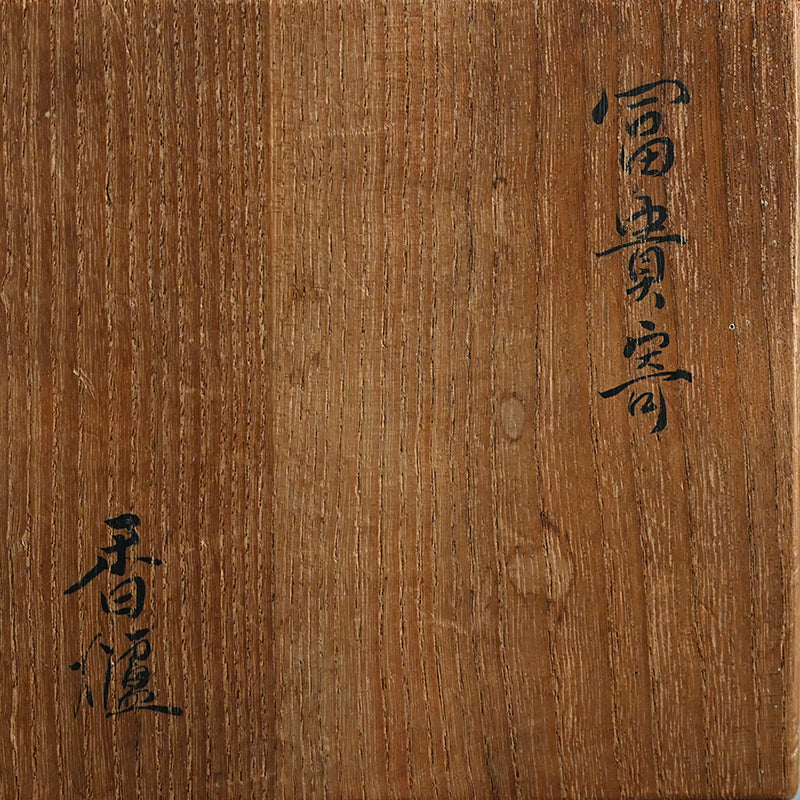 冨貴寄
香爐